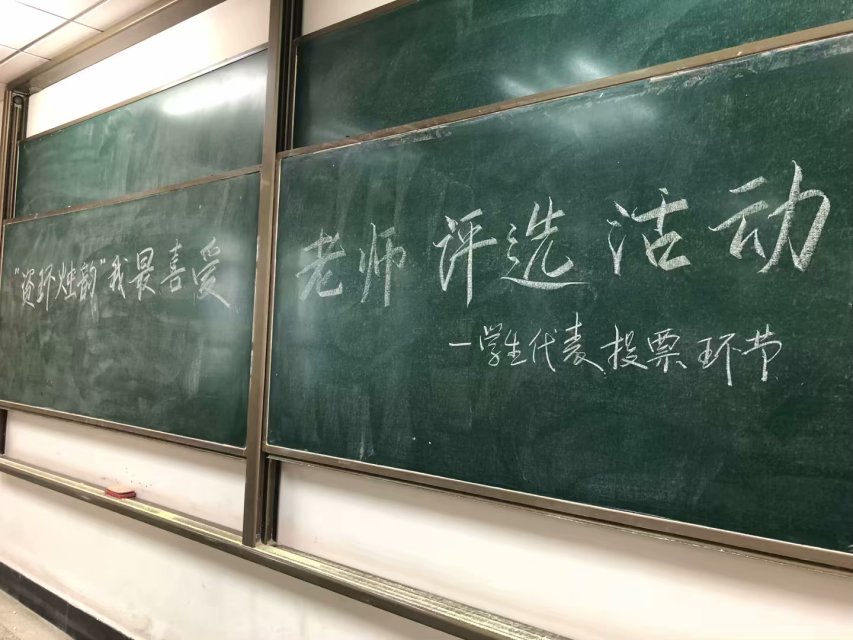 "资环烛韵"我最喜爱老师评选活动
—学生代表投票环节